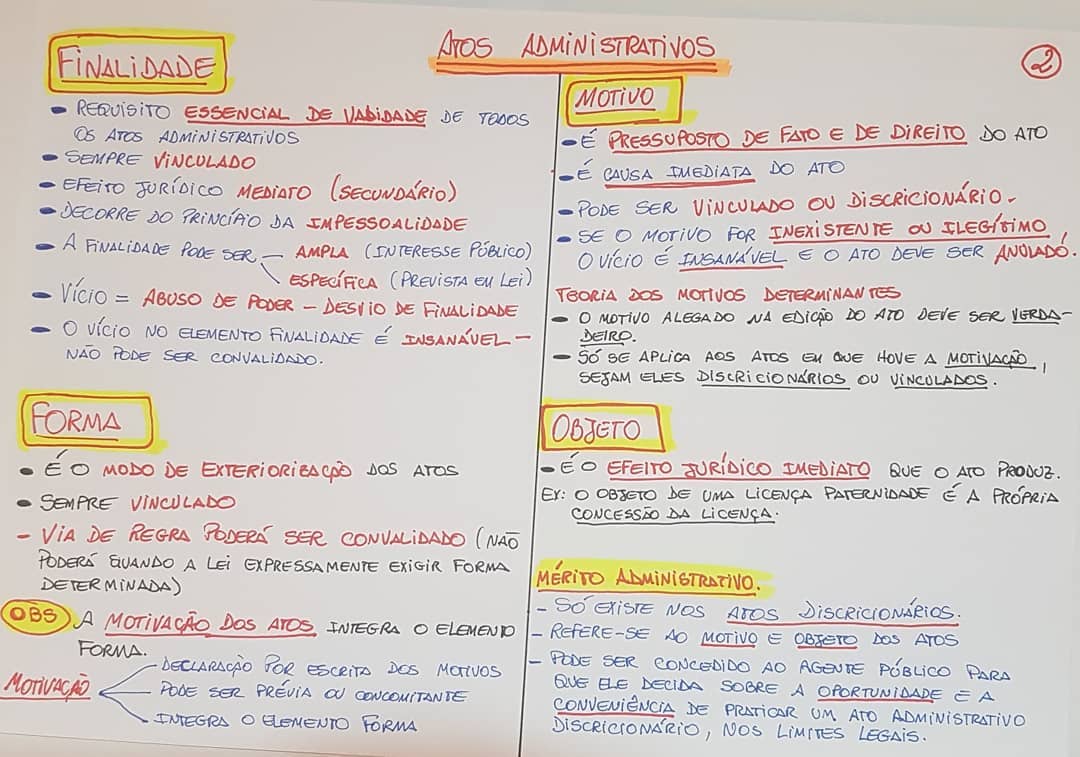 ATOS ADMINISTRATIVOS
2
FINALIDADE
- REQUISITO ESSENCIAL DE VALIDADE DE TODOS
OS ATOS ADMINISTRATIVOS
- SEMPRE VINCULADO
- EFEITO JURÍDICO MEDIATO (SECUNDÁRIO)
- DECORRE DO PRINCÍPIO DA IMPESSOALIDADE
- A FINALIDADE PODE SER — AMPLA (INTERESSE PÚBLICO)
ESPECÍFICA (PREVISTA EM LEI)
- VÍCIO = ABUSO DE PODER - DESVIO DE FINALIDADE
- O VÍCIO NO ELEMENTO FINALIDADE É INSANÁVEL -
NÃO PODE SER CONVALIDADO.
FORMA
• É O MODO DE EXTERIORIZAÇÃO DOS ATOS
• SEMPRE VINCULADO
- VIA DE REGRA PODERÁ SER CONVALIDADO (NÃO
PODERÁ QUANDO A LEI EXPRESSAMENTE EXIGIR FORMA
DETERMINADA)
OBS A MOTIVAÇÃO DOS ATOS INTEGRA O ELEMENTO
FORMA.
MOTIVAÇÃO
DECLARAÇÃO POR ESCRITO DOS MOTIVOS
PODE SER PRÉVIA OU CONCOMITANTE
INTEGRA O ELEMENTO FORMA
MOTIVO
- É PRESSUPOSTO DE FATO E DE DIREITO DO ATO
- É CAUSA IMEDIATA DO ATO
- PODE SER VINCULADO OU DISCRICIONÁRIO.
- SE O MOTIVO FOR INEXISTENTE OU ILEGÍTIMO,
O VÍCIO É INSANÁVEL E O ATO DEVE SER ANULADO.
TEORIA DOS MOTIVOS DETERMINANTES
- O MOTIVO ALEGADO NA EDIÇÃO DO ATO DEVE SER VERDA-
DEIRO.
- SÓ SE APLICA AOS ATOS EM QUE HOVE A MOTIVAÇÃO,
SEJAM ELES DISCRICIONÁRIOS OU VINCULADOS.
OBJETO
- É O EFEITO JURÍDICO IMEDIATO QUE O ATO PRODUZ.
EX: O OBJETO DE UMA LICENÇA PATERNIDADE É A PRÓPRIA
CONCESSÃO DA LICENÇA.
MÉRITO ADMINISTRATIVO.
- SÓ EXISTE NOS ATOS DISCRICIONÁRIOS.
- REFERE-SE AO MOTIVO E OBJETO DOS ATOS
- PODE SER CONCEDIDO AO AGENTE PÚBLICO PARA
QUE ELE DECIDA SOBRE A OPORTUNIDADE E A
CONVENIÊNCIA DE PRATICAR UM ATO ADMINISTRATIVO
DISCRICIONÁRIO, NOS LIMITES LEGAIS.